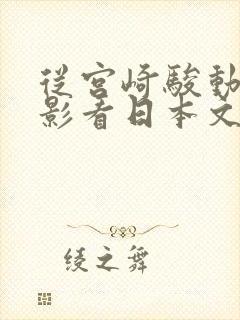 從宮崎駿動
影看日本文
綾之舞